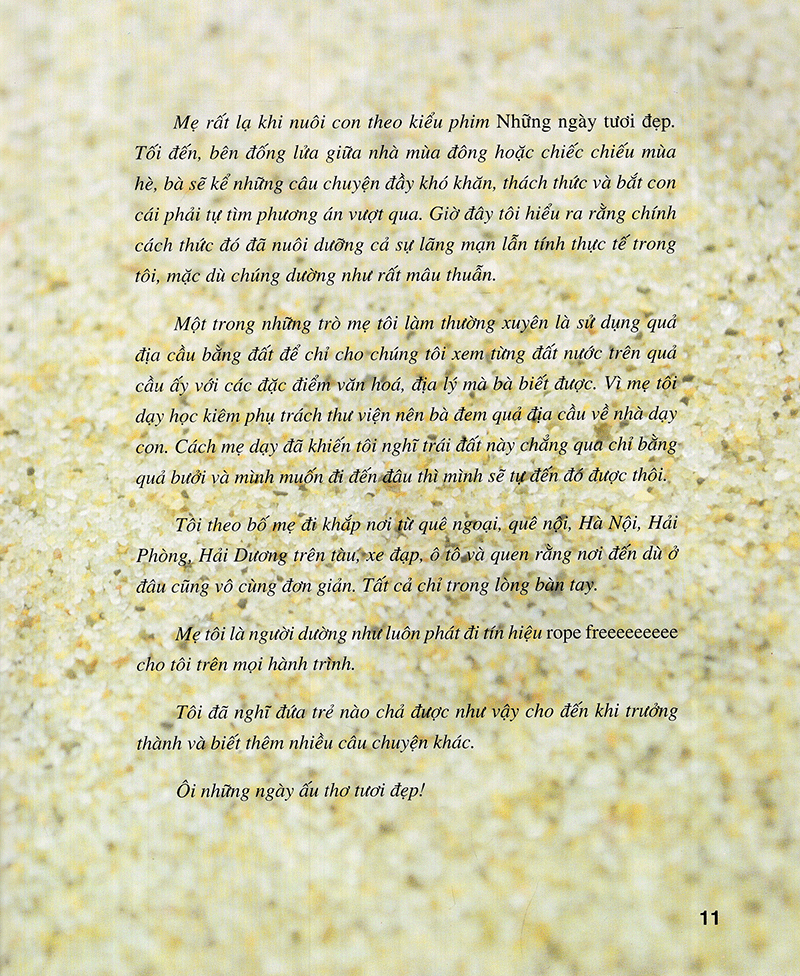 Mẹ rất lạ khi nuôi con theo kiểu phim Những ngày tươi đẹp.
Tối đến, bên đống lửa giữa nhà mùa đông hoặc chiếc chiếu mùa
hè, bà sẽ kể những câu chuyện đầy khó khăn, thách thức và bắt con
cái phải tự tìm phương án vượt qua. Giờ đây tôi hiểu ra rằng chính
cách thức đó đã nuôi dưỡng cả sự lãng mạn lẫn tính thực tế trong
tôi, mặc dù chúng dường như rất mâu thuẫn.
Một trong những trò mẹ tôi làm thường xuyên là sử dụng quả
địa cầu bằng đất để chỉ cho chúng tôi xem từng đất nước trên quả
cầu ấy với các đặc điểm văn hoá, địa lý mà bà biết được. Vì mẹ tôi
dạy học kiêm phụ trách thư viện nên bà đem quả địa cầu về nhà dạy
con. Cách mẹ dạy đã khiến tôi nghĩ trái đất này chẳng qua chỉ bằng
quả bưởi và mình muốn đi đến đâu thì mình sẽ tự đến đó được thôi.
Tôi theo bố mẹ đi khắp nơi từ quê ngoại, quê nội, Hà Nội, Hải
Phòng, Hải Dương trên tàu, xe đạp, ô tô và quen rằng nơi đến dù ở
đâu cũng vô cùng đơn giản. Tất cả chỉ trong lòng bàn tay.
Mẹ tôi là người dường như luôn phát đi tín hiệu rope freeeeeeeee
cho tôi trên mọi hành trình.
Tôi đã nghĩ đứa trẻ nào chả được như vậy cho đến khi trưởng
thành và biết thêm nhiều câu chuyện khác.
Ôi những ngày ấu thơ tươi đẹp!
11